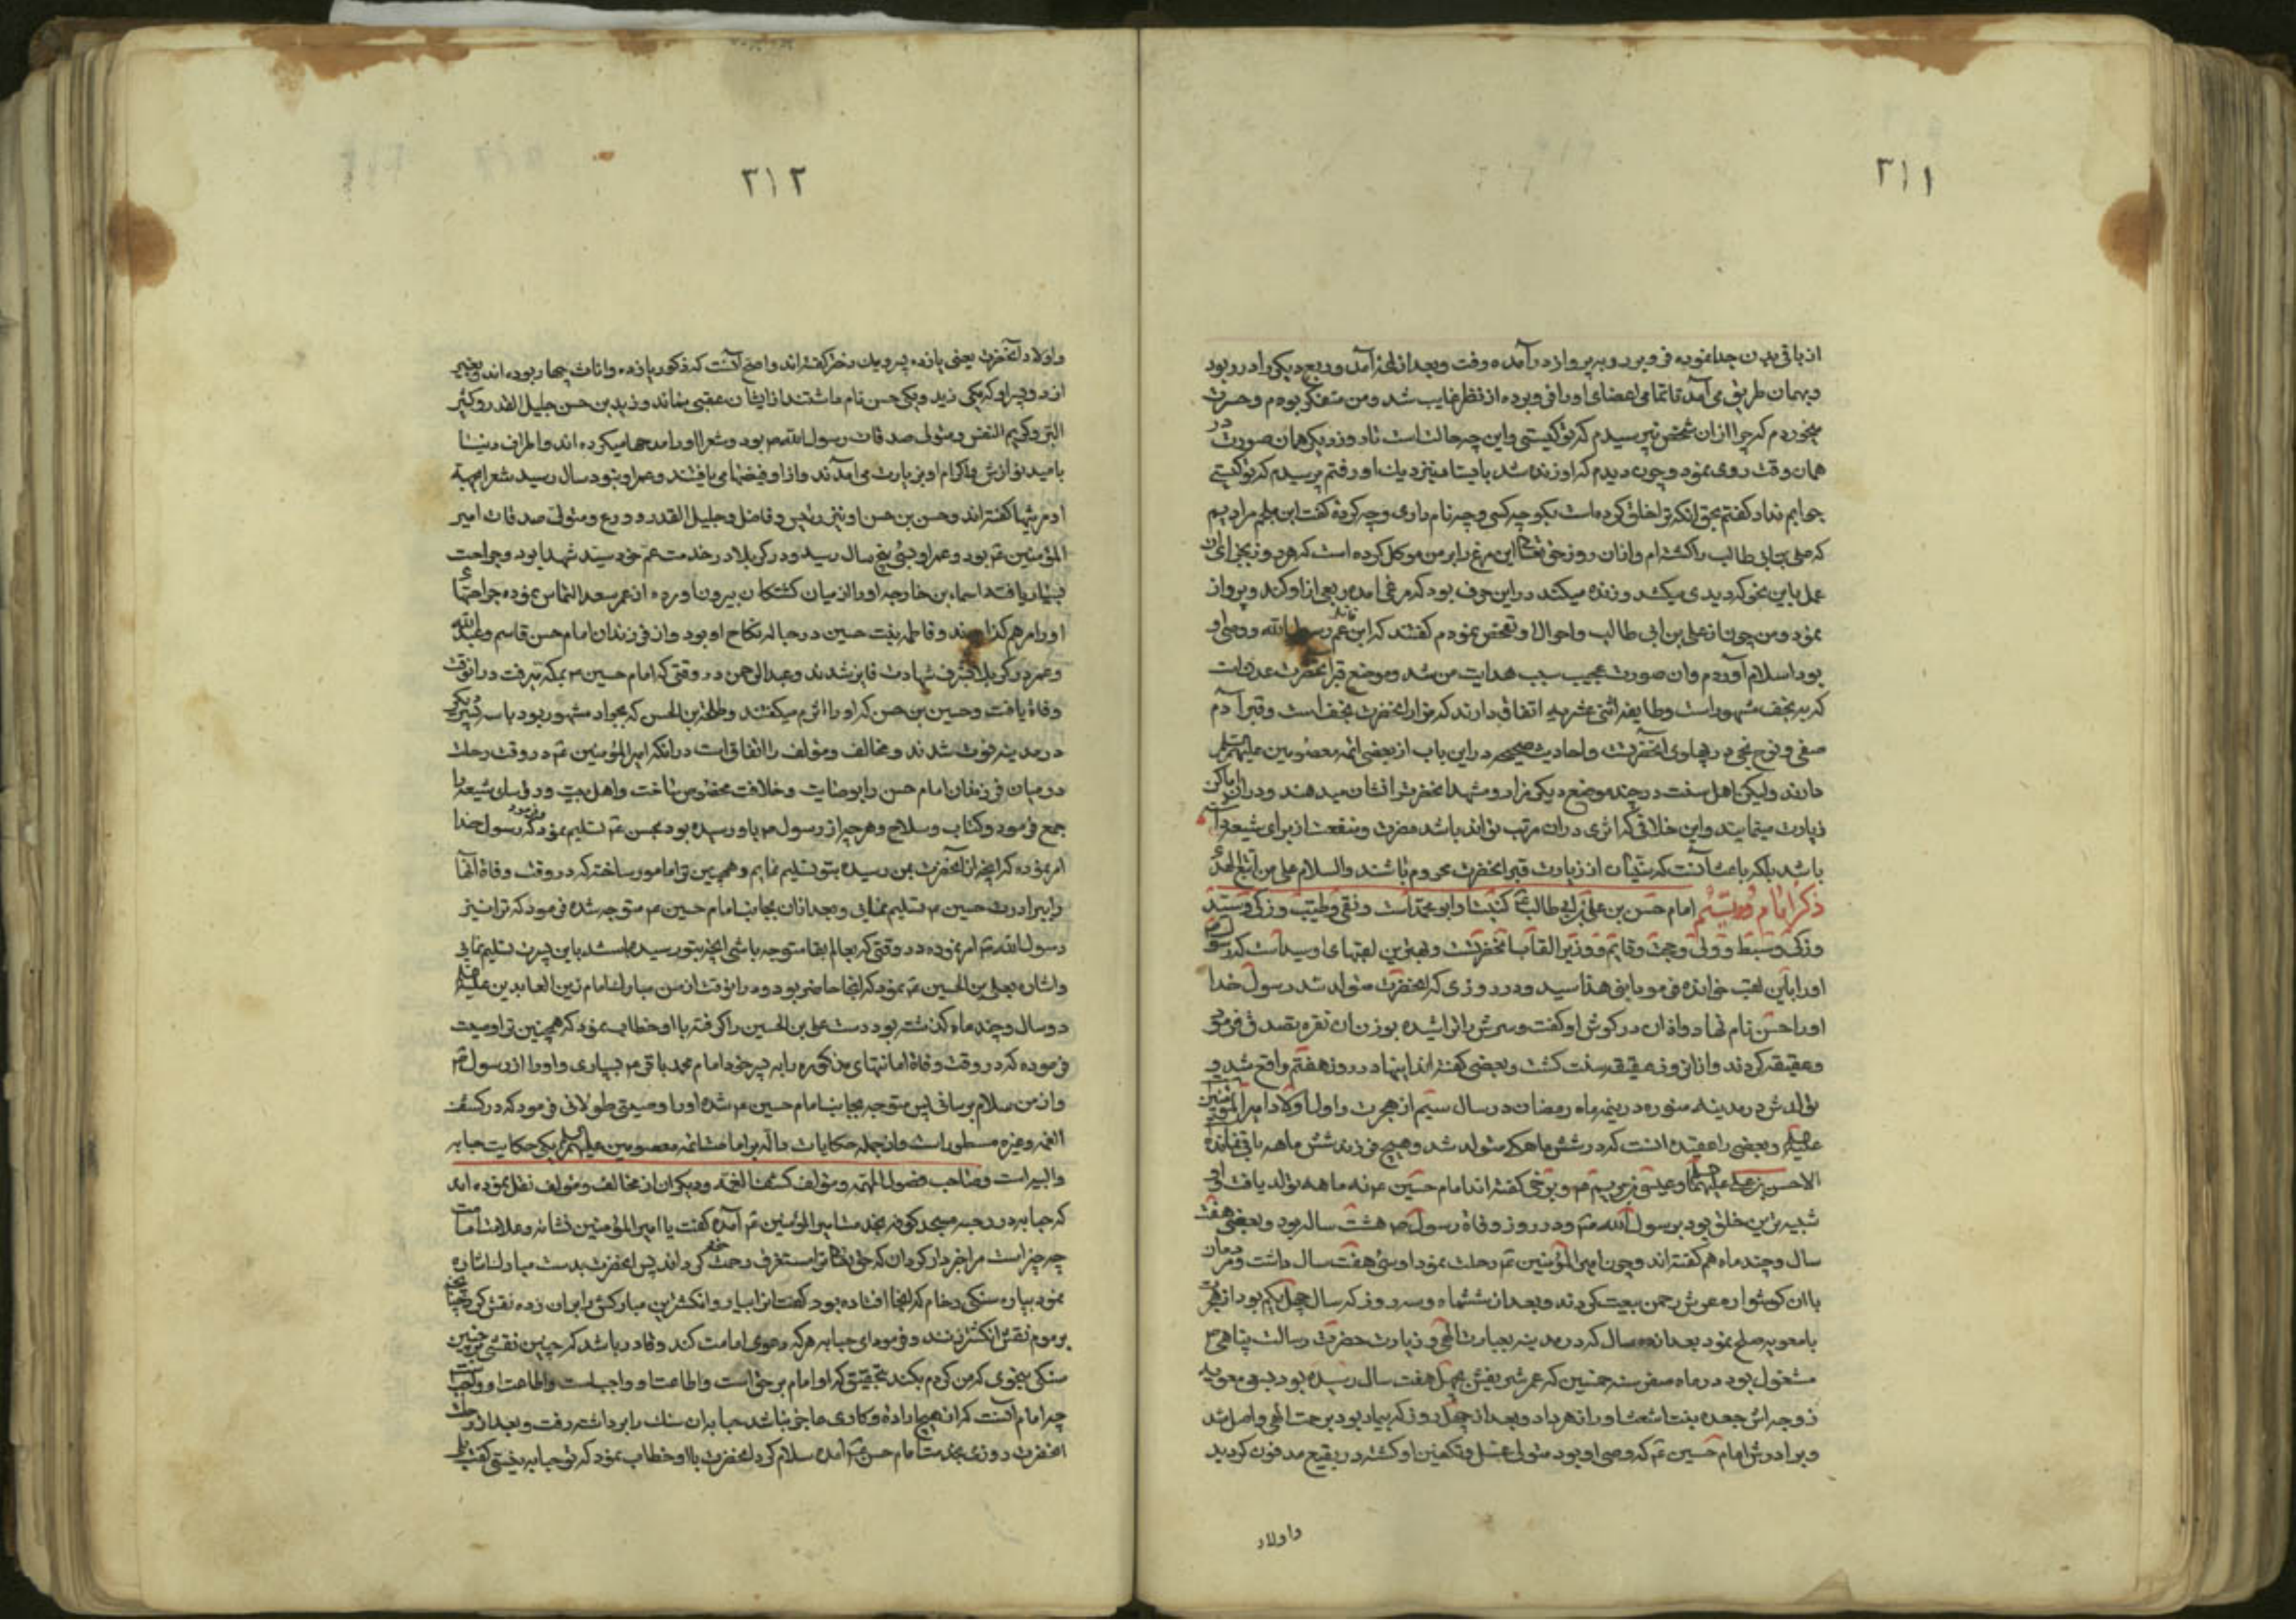 ۳۱۱
از باقی بدن جدا نموده فرو برد و به پرواز درآمده رفت و بعد از لحظه آمد و ربع دیگر را در ربود
و بهمان طریق می آمد تا تمامی اعضای او را فرو برده از نظر غایب شد و من متفکر بودم و حسرت
میخوردم که چرا ازان شخص نپرسیدم که تو کیستی و این چه حالت است تا روز دیگر همان صورت در
همان وقت روی نمود و چون دیدم که او زنده شد بایستادم نزدیک او رفتم پرسیدم که تو کیستی
جوابم نداد گفتم بحق انکه ترا خلق کرده است بگو چه کسی و چه نام داری و چه کردهٔ گفت ابن ملجم مرادیم
که علی بن ابی طالب را کشته ام و ازان روز حق تعالی این مرغ را بر من موکل کرده است که هر روز بجزای ان
عمل باین نحو که دیدی میکشد و زنده میکند در این حرف بود که مرغ آمده ربعی از او کند و پرواز
نمود و من چون از علی بن ابی طالب و احوال او تفحص نمودم گفتند که ابن عم رسول الله و وصی او
بود اسلام آوردم و ان صورت عجیب سبب هدایت من شد و موضع قبر آنحضرت
که به نجف مشهور است و طایفه اثنی عشریه اتفاق دارند که مزار انحضرت نجف است و قبر آدم
صفی و نوح نجی در پهلوی آنحضرت و احادیث صحیحه در این باب از بعضی ائمه معصومین علیهم السلام
دارند ولیکن اهل سنت در چند موضع دیگر مزار و مشهد انحضرت را نشان میدهند و در ان اماکن
زیارت مینمایند و این خلافی که اثری در ان مرتب تواند باشد مضرت و منفعت از برای شیعه
باشد بلکه باعث آنست که سنیان از زیارت قبر انحضرت محروم باشند والسلام علی من اتبع الهدی
ذکر امام دویستم امام حسن بن علی بن ابی طالب کنیتش ابو محمد است و تقی و طیب و زکی و سید
و زکی و سبط و ولی و حجت و قایم و وزیر القاب آنحضرت و بهترین لقبهای او سید است که رسول
او را باین لقب خوانده فرمود ابنی هذا سید و در روزی که انحضرت متولد شد رسول خدا
او را حسن نام نهاد و اذان در گوش او گفت و سرش را تراشیده بوزن ان نقره تصدق فرمود
و عقیقه کردند و ازان روز عقیقه سنت گشت و بعضی گفته اند اینها در روز هفتم واقع شد و
تولدش در مدینه منوره در نیمه ماه رمضان در سال سیم از هجرت و اول اولاد امیر المؤمنین
علیه السلام و بعضی را عقیده انست که در شش ماهگی متولد شد و هیچ فرزند شش ماهه باقی نمانده
الا حسن بن علی علیهما السلام و عیسی بن مریم و برخی گفته اند امام حسین نه ماهه تولد یافت و
شبیه ترین خلق بود برسول الله و در روز وفاة رسول هشت ساله بود و بعضی هفت
سال و چند ماه هم گفته اند و چون امیر المؤمنین رحلت نمود او سی هفت سال داشت و مردمان
با ان گوشواره عرش رحمن بیعت کردند و بعد از ششماه و سه روز که سال چهل یکم بود از هجرت
با معویه صلح نمود بعد از ده سال که در مدینه بعبادت الهی و زیارت حضرت رسالت پناهی
مشغول بود در ماه صفر سنه خمسین که عمر شریفش بچهل هفت سال رسیده بود بسعی معویه
زوجه اش جعده بنت اشعث او را زهر داد و بعد از چهل روز که بیمار بود برحمت الهی واصل شد
و برادرش امام حسین که وصی او بود متولی غسل و تکفین او گشته در بقیع مدفون گردید
و اولاد
۳۱۲
و اولاد آنحضرت یعنی پانزده پسر و یک دختر گفته اند و اصح آنست که ذکور یازده و اناث چهار بوده اند و بغیر
از دو پسر او که یکی زید و یکی حسن نام داشتند از ایشان عقبی نماند و زید بن حسن جلیل القدر و کثیر
البر و کریم النفس و متولی صدقات رسول الله بود و شعرا او را مدحها میکرده اند و از اطراف دنیا
بامید نوازش و اکرام او بزیارت می آمدند و از او فیضها می یافتند و عمر او بنود سال رسید شعرا بجهة
او مرثیها گفته اند و حسن بن حسن او نیز رئیس و فاضل و جلیل القدر و ورع و متولی صدقات امیر
المؤمنین بود و عمر او بسی پنج سال رسید و در کربلا در خدمت عم خود سید شهدا بود و جراحت
بسیار یافت اسماء بن خارجه او را از میان کشتکان بیرون آورده از عمر سعد التماس نموده جراحتهای
او را مرهم گذاردند و فاطمه بنت حسین در حباله نکاح او بود و از فرزندان امام حسن قاسم و عبد الله
و عمر در کربلا بشرف شهادت فایز شدند و عبد الرحمن در وقتی که امام حسین بمکه میرفت در انوقت
وفاة یافت و حسین بن حسن که او را اثرم میگفتند و طلحة بن الحسن که بجواد مشهور بود با سه پسر دیگر
در مدینه فوت شدند و مخالف و مؤلف را اتفاق است در انکه امیر المؤمنین در وقت رحلت
در میان فرزندان امام حسن را بوصایت و خلافت مخصوص ساخت و اهل بیت و رؤسای شیعه را
جمع فرمود و کتاب و سلاح و هر چه از رسول باو رسیده بود بحسن تسلیم نمود و فرمود که رسول خدا
امر نموده که انچه از آنحضرت بمن رسیده بتو تسلیم نمایم و همچنین ترا مامور ساخته که در وقت وفاة آنها
را ببرادرت حسین تسلیم نمایی و بعد ازان بجانب امام حسین متوجه شده فرمود که ترا نیز
رسول الله امر نموده در وقتی که بعالم بقا متوجه باشی انچه بتو رسیده باشد باین پسرت تسلیم نمایی
و اشاره بعلی بن الحسین نمود که انجا حاضر بود و در انوقت از سن مبارک امام زین العابدین علیه السلام
دو سال و چند ماه گذشته بود دست علی بن الحسین را گرفته باو خطاب نمود که همچنین ترا وصیت
فرموده که در وقت وفاة امانتهای مذکوره را به پسر خود امام محمد باقر بسپاری و او را از رسول
و از من سلام برسانی پس متوجه بجانب امام حسین شده او را وصیتی طولانی فرمود که در کشف
الغمه و غیره مسطور است و از جمله حکایات داله بر امامت ائمه معصومین علیهم السلام یکی حکایت حبابه
والبیه است و صاحب فصول المهمه و مؤلف کشف الغمه و دیگران از مخالف و مؤلف نقل نموده اند
که حبابه در رحبه مسجد کوفه بخدمت امیر المؤمنین آمده گفت یا امیر المؤمنین نشانه و علامت امامت
چه چیز است مرا خبردار گردان که حق تعالی ترا مستغرف رحمت خود گرداند پس انحضرت بدست مبارک اشاره
نمود بپاره سنگی رخام که انجا افتاده بود گفت انرا بیار و انگشترین مبارکش را بران زده نقش گرفت چنانچه
بر موم نقش انگشتر زنند و فرمود ای حبابه هر که دعوی امامت کند و قادر باشد که چنین نقشی بر چنین
سنگی بنحوی که من کردم بکند بتحقیق که او امام بر حق است و اطاعت او واجب است و اطاعت او واجب
چه امام آنست که از هیچ اراده و کاری عاجز نباشد حبابه ان سنگ را برداشته رفت و بعد از رحلت
انحضرت روزی بخدمت امام حسن آمده سلام کرد انحضرت باو خطاب نمود که تو حبابه نیستی گفت بلی